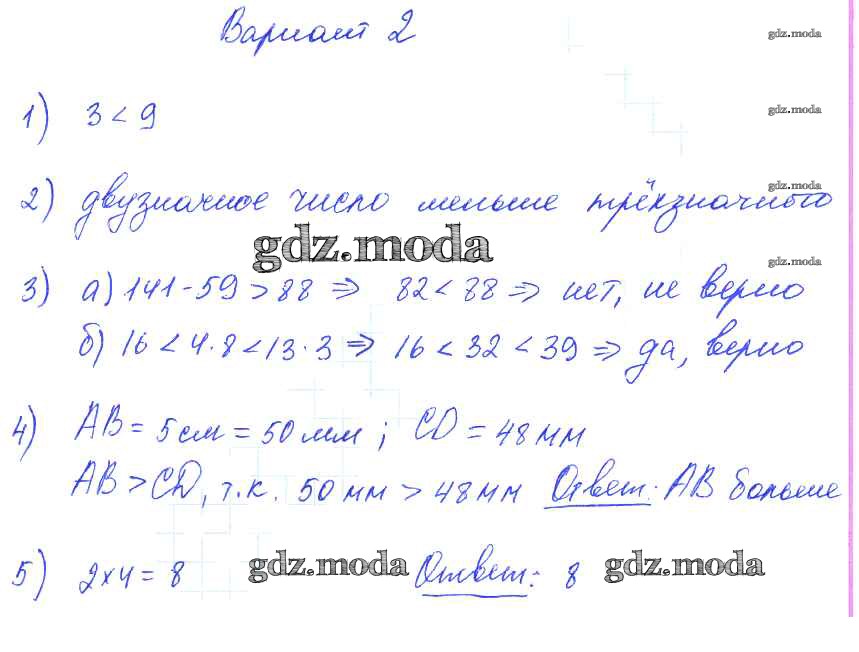 Вариант 2
gdz.moda
1) 3 < 9
gdz.moda
gdz.moda
2) двузначное число меньше трёхзначного
gdz.moda
gdz.moda
3) а) 141 - 59 > 88 ⇒ 82 < 88 ⇒ нет, не верно
б) 16 < 4 · 8 < 13 · 3 ⇒ 16 < 32 < 39 ⇒ да, верно
4) AB = 5 см = 50 мм ; CD = 48 мм
AB > CD, т.к. 50 мм > 48 мм Ответ: AB больше
5) 2 × 4 = 8 gdz.moda Ответ: 8 gdz.moda